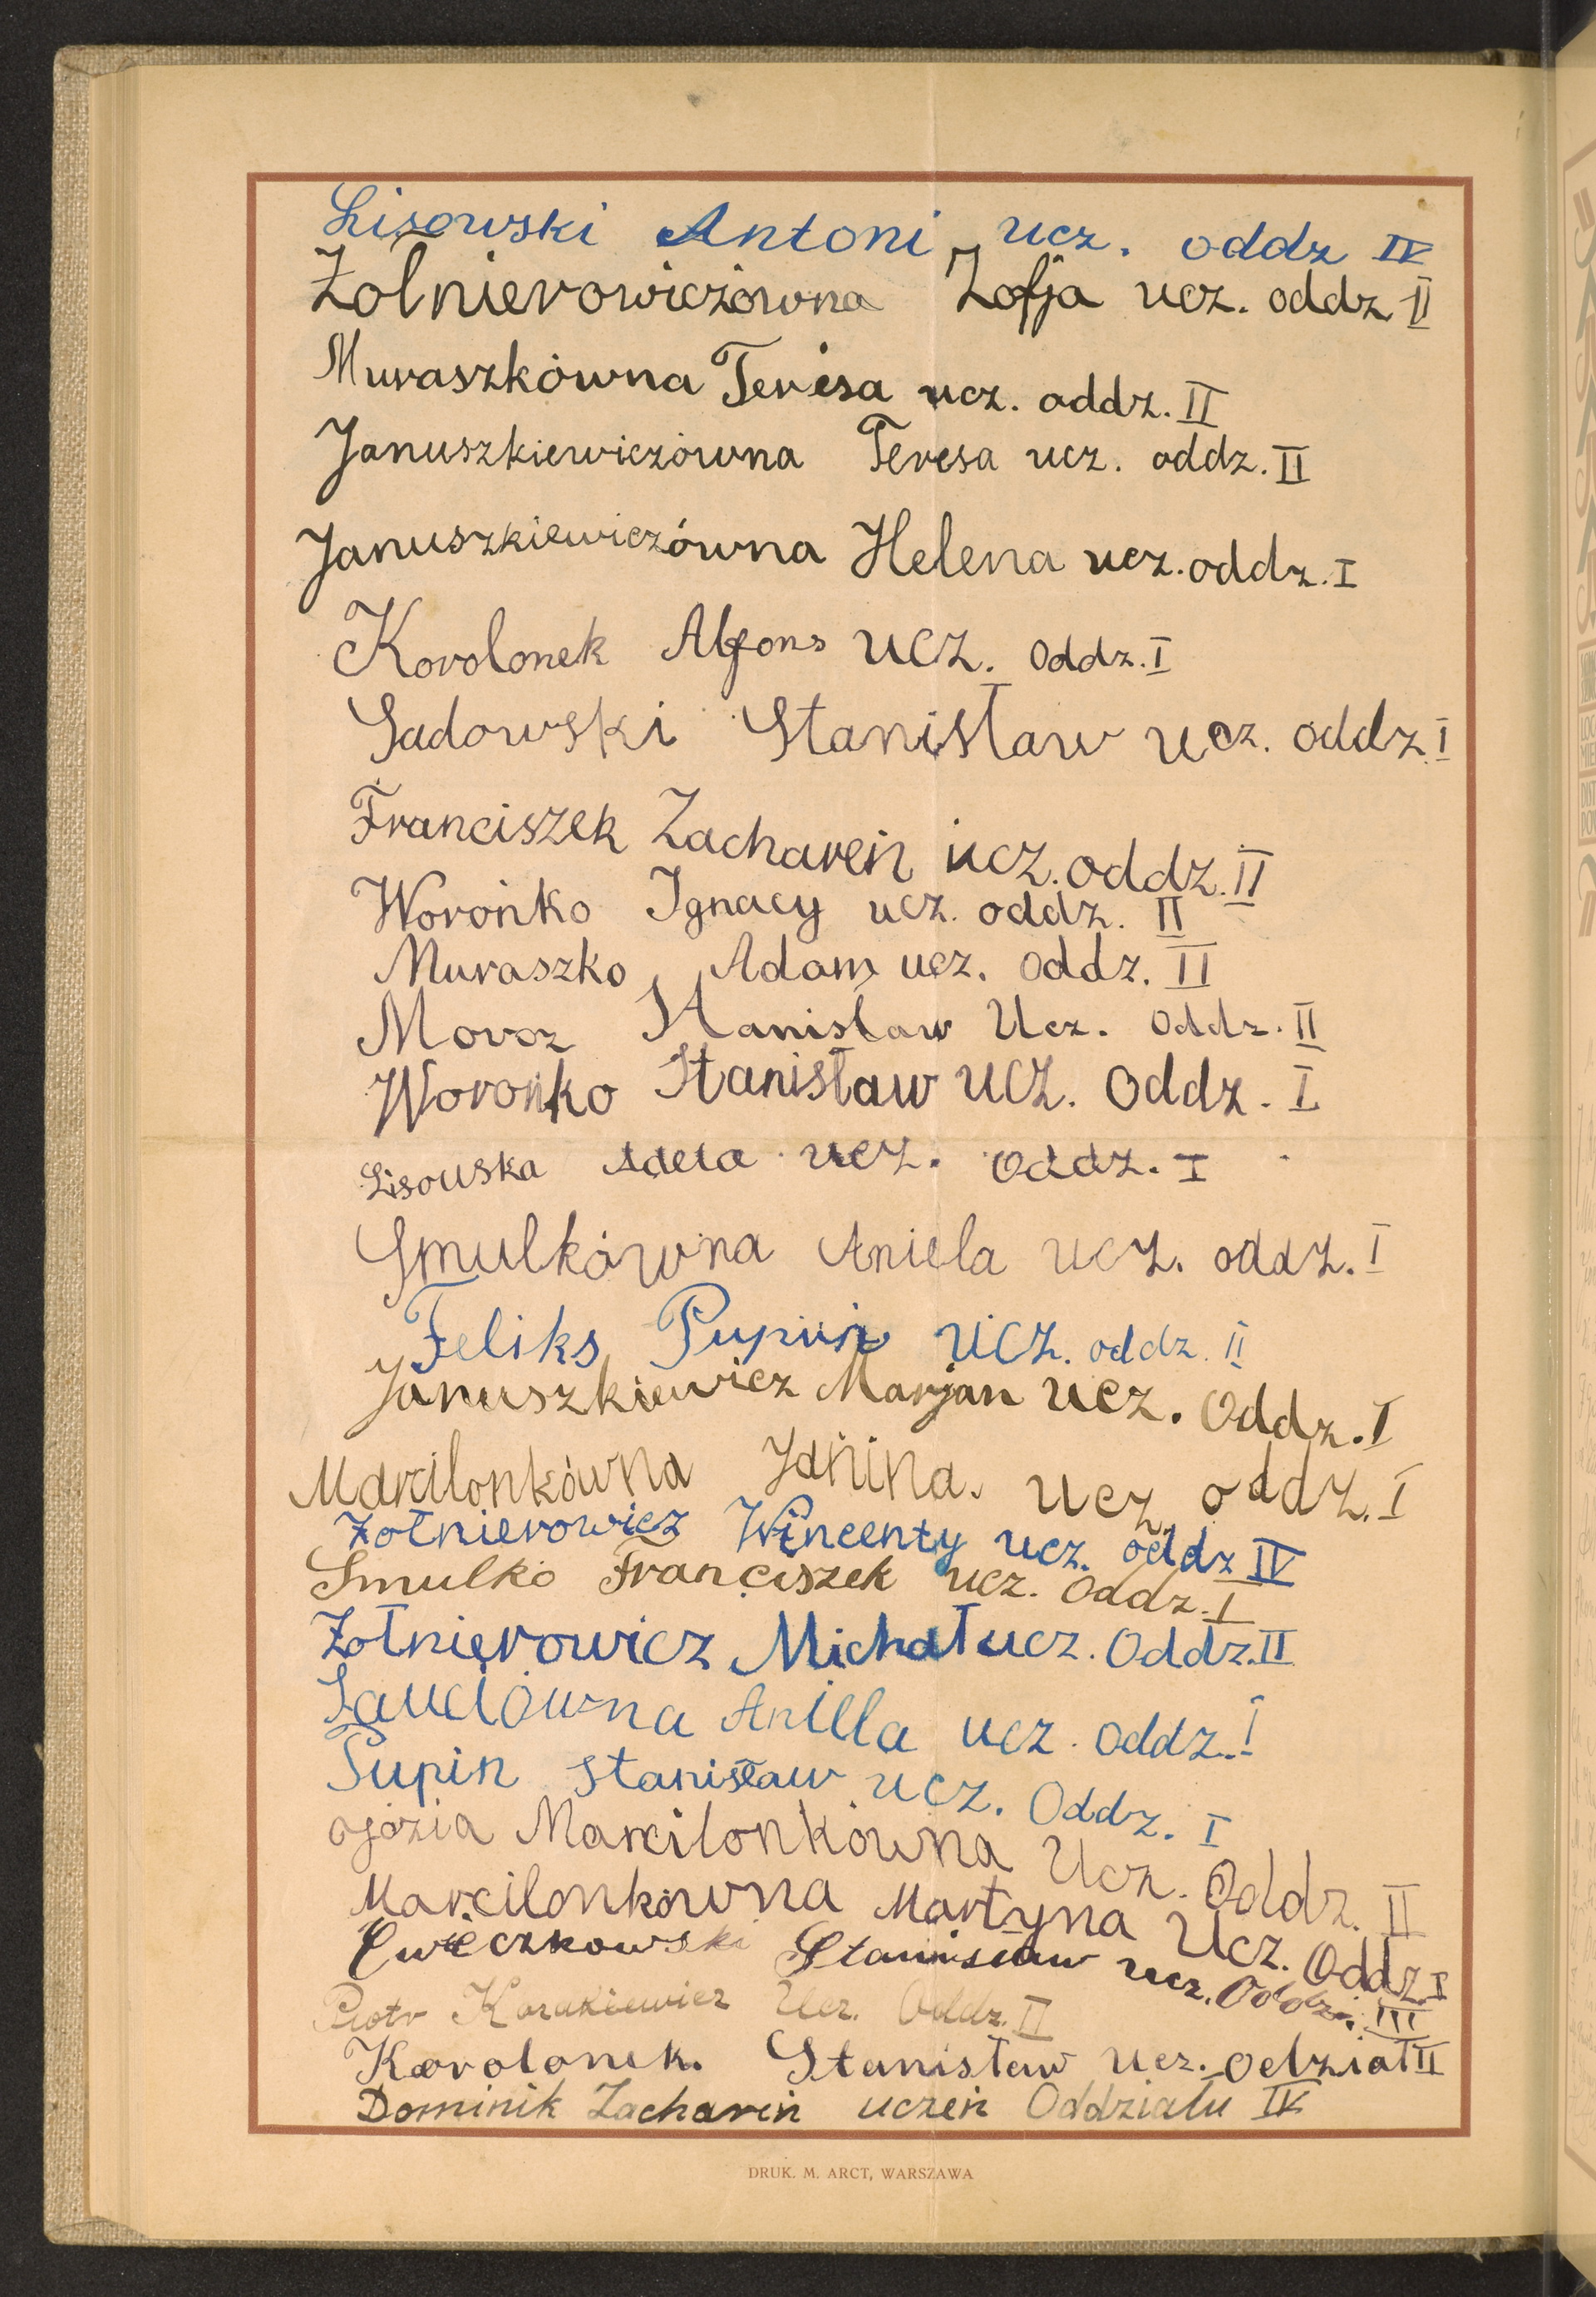 Lisowski Antoni ucz. oddz IV
Żołnierowiczówna Zofja ucz. oddz II
Muraszkówna Teresa ucz. oddz. II
Januszkiewiczówna Teresa ucz. oddz. II
Januszkiewiczówna Helena ucz. oddz. I
Korolonek Alfons ucz. oddz. I
Sadowski Stanisław ucz. oddz. I
Franciszek Zachareń ucz. oddz. II
Worońko Ignacy ucz. oddz. II
Muraszko Adam ucz. oddz. II
Moroz Stanisław Ucz. Oddz. II
Worońko Stanisław ucz. Oddz. I
Lisouska Adela ucz. Oddz. I
Smulkówna Aniela ucz. oddz. I
Feliks Pupin ucz. oddz. II
Januszkiewicz Marjan ucz. Oddz. I
Marcilonkówna Janina. Ucz. oddz. I
Żołnierowicz Wincenty ucz. oddz IV
Smulko Franciszek ucz. Oddz. I
Żołnierowicz Michał ucz. Oddz. II
ucz. oddz. I
Pupin Stanisław ucz. Oddz. I
Marcilonkówna Ucz. Oddz. II
Marcilonkówna Martyna Ucz. Oddz. I
Ćwieczkowski Stanisław ucz. Oddz. III
Piotr Ucz. Oddz. II
Korolonek. Stanisław ucz. odział II
Dominik Zachareń uczeń Oddziału IV
DRUK. M. ARCT, WARSZAWA